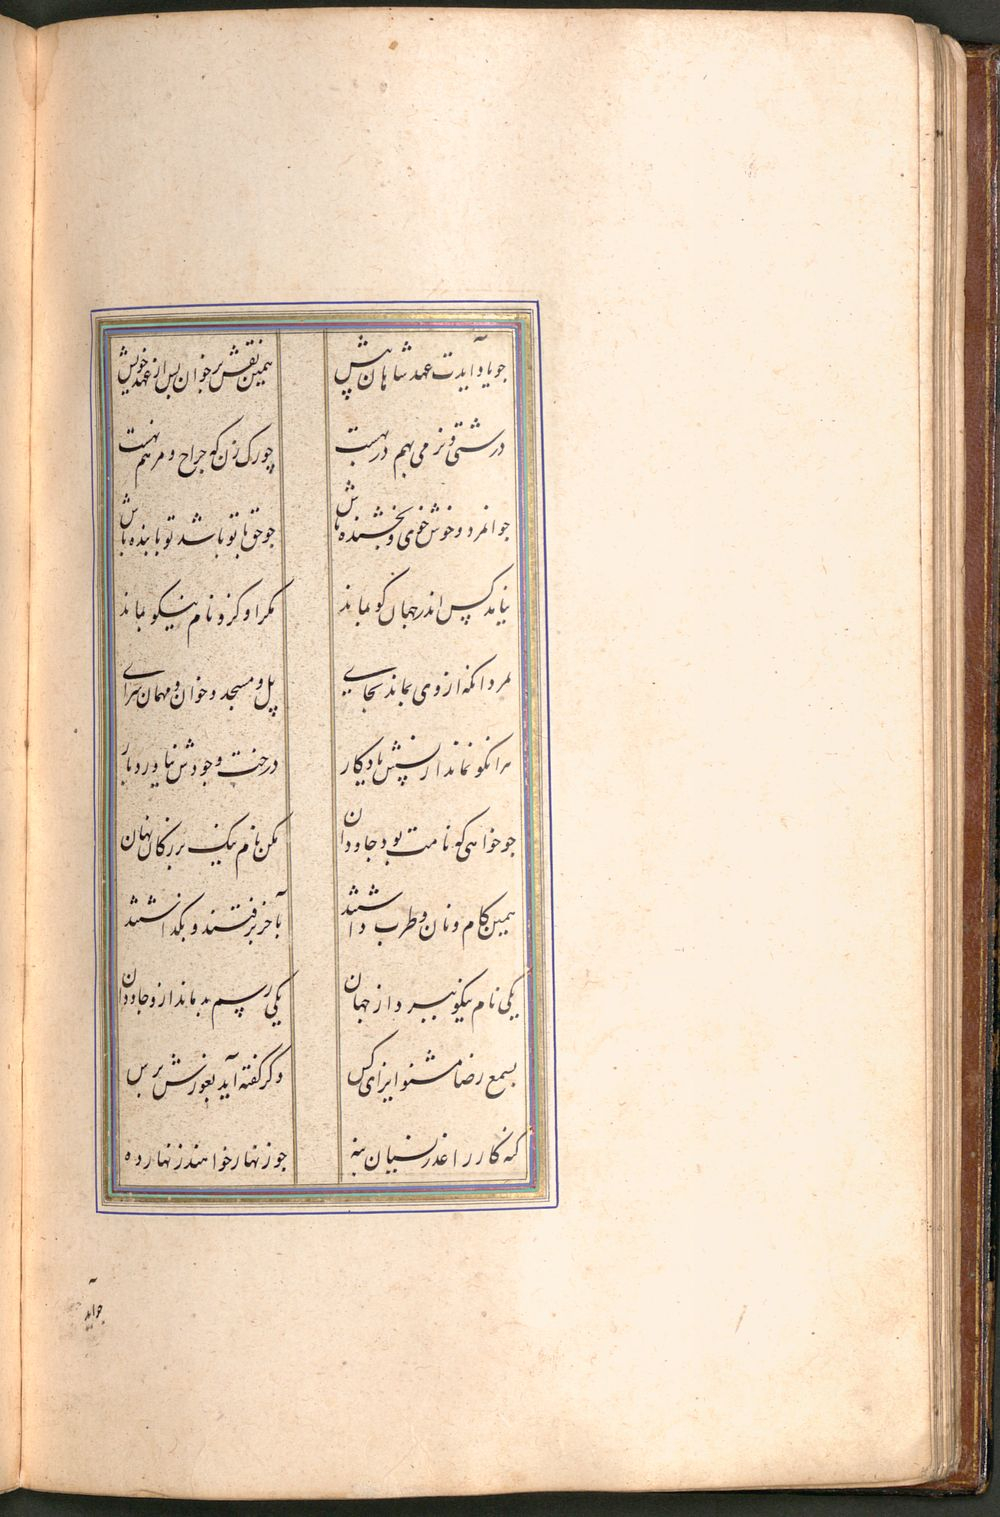 جو یاد آیدت عهد شاهان پیش همین نقش بر خوان پس از عهد خویش
درشتی و نرمی بهم در بهست چو رک زن که جراح و مرهم نهست
جوانمرد و خوش خوی و بخشنده باش جو حق با تو باشد تو با بنده باش
نیامد کس اندر جهان کو بماند مکر او کزو نام نیکو بماند
نمرد انکه از وی بماند بجای پل و مسجد و خوان و مهمان سرای
هر انکو نماند از پسش یادکار درخت وجودش نیاورد بار
جو خواهی که نامت بود جاودان مکن نام نیک بزرکان نهان
همین کام و نان و طرب داشتند بآخر برفتند و بکذاشتند
یکی نام نیکو ببرد از جهان یکی رسم بد ماند ازو جاودان
بسمع رضا مشنو ایزای کس وکر کفته آید بغورش برس
کنه کار را عذر نسیان بنه جو زنهار خواهند زنهار ده
جو آید